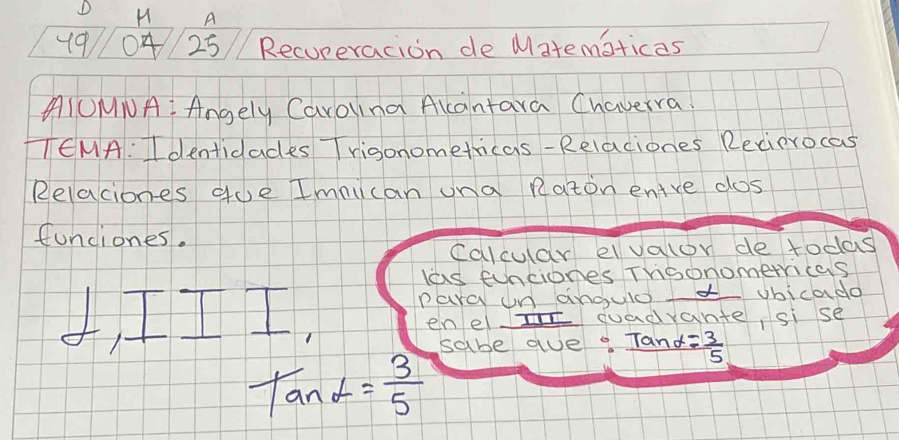 D M A
19 / 04 / 25 Recuperación de Matemáticas
AlUMNA: Angely Carolina Alcantara Chaverra.
TEMA: Identidades Trigonometricas - Relaciones Reciprocas
Relaciones que Implican una Razón entre dos
funciones.
Calcular el valor de todas
las funciones Trigonometricas
para un ángulo α ubicado
en el III cuadrante, si se
sabe que: Tan α = 3/5
α, III,
Tan α = 3/5